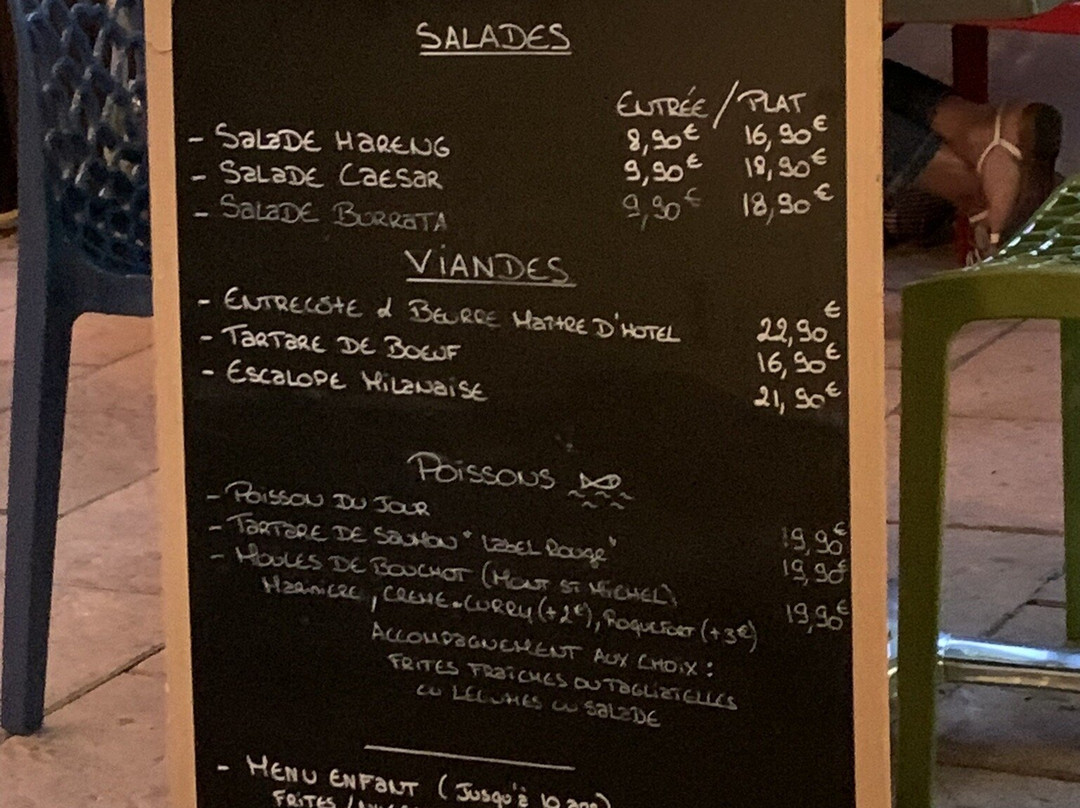 SALADES
ENTRÉE / PLAT
- SALADE HARENG 8,90€ 16,90€
- SALADE CAESAR 9,90€ 18,90€
- SALADE BURRATA 9,90€ 18,90€
VIANDES
- ENTRECÔTE & BEURRE MAÎTRE D'HOTEL 22,90€
- TARTARE DE BOEUF 16,90€
- ESCALOPE MILANAISE 21,90€
POISSONS
- POISSON DU JOUR 19,90€
- TARTARE DE SAUMON "LABEL ROUGE" 19,90€
- MOULES DE BOUCHOT (MONT ST MICHEL) 19,90€
MARINIERE, CREME-CURRY (+2€), ROQUEFORT (+3€)
ACCOMPAGNEMENT AUX CHOIX :
FRITES FRAÎCHES OU TAGLIATELLES
OU LÉGUMES OU SALADE
- MENU ENFANT (JUSQU'À 10 ans)
FRITES /